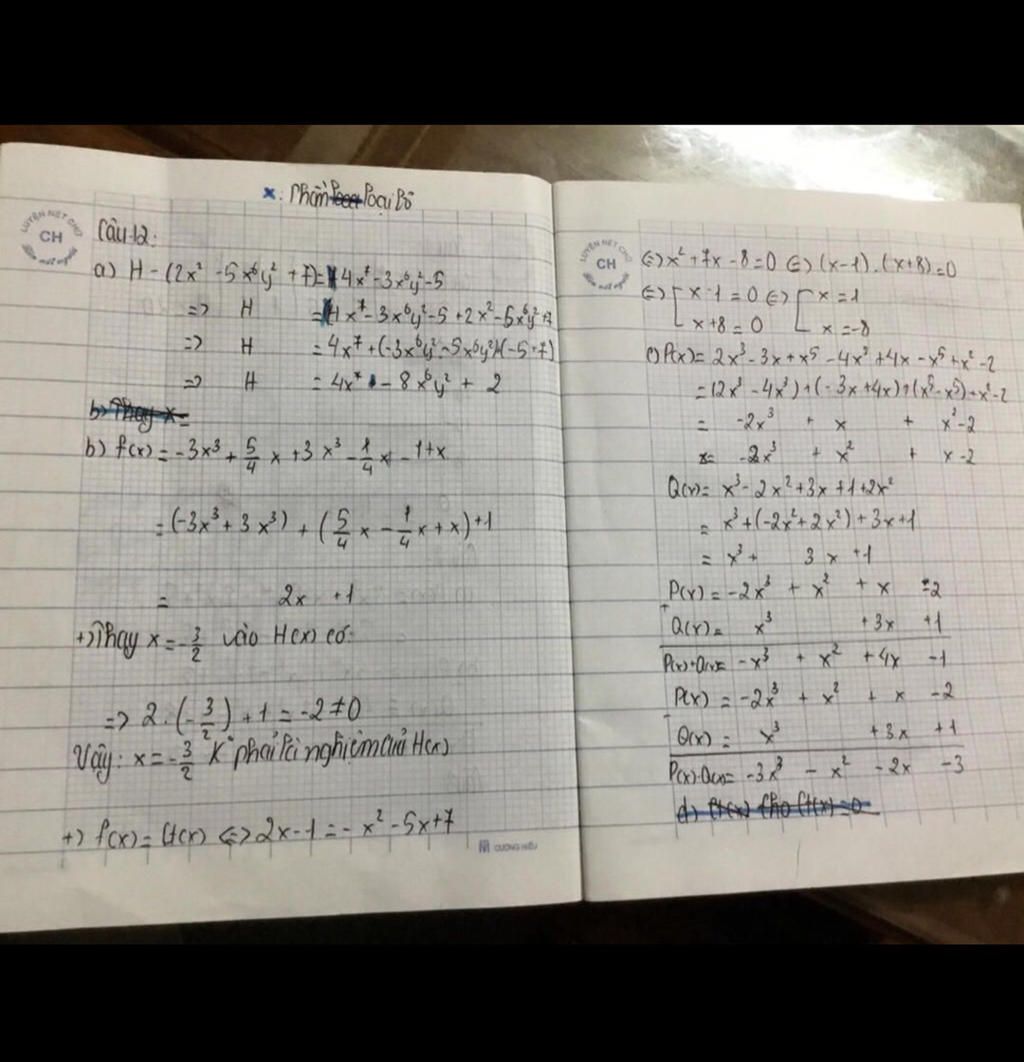 x: Phần loại bỏ
LUYỆN NÉT CHỮ
CH
Câu 12:
a) H - (2x² - 5x⁶y² + 7) = 4x⁷ - 3x⁶y² - 5
=> H = 4x⁷ - 3x⁶y² - 5 + 2x² - 5x⁶y² + 7
=> H = 4x⁷ + (-3x⁶y² - 5x⁶y²) + (-5 + 7)
=> H = 4x⁷ - 8x⁶y² + 2
b) Thay x =
b) f(x) = -3x³ + 5/4 x + 3x³ - 1/4 x - 1 + x
= (-3x³ + 3x³) + (5/4 x - 1/4 x + x) + 1
= 2x + 1
+) Thay x = -3/2 vào H(x) có:
=> 2 . (-3/2) + 1 = -2 ≠ 0
Vậy: x = -3/2 K° phải là nghiệm của H(x)
+) f(x) = H(x) <=> 2x - 1 = - x² - 5x + 7
CƯỜNG HIẾU
LUYỆN NÉT CHỮ
CH
<=> x² + 7x - 8 = 0 <=> (x - 1) . (x + 8) = 0
<=> [ x - 1 = 0 <=> [ x = 1
x + 8 = 0 x = -8
c) P(x) = 2x³ - 3x + x⁵ - 4x³ + 4x - x⁵ + x² - 2
= (2x³ - 4x³) + (-3x + 4x) + (x⁵ - x⁵) + x² - 2
= -2x³ + x + x² - 2
= -2x³ + x² + x - 2
Q(x) = x³ - 2x² + 3x + 1 + 2x²
= x³ + (-2x² + 2x²) + 3x + 1
= x³ + 3x + 1
P(x) = -2x³ + x² + x - 2
+
Q(x) = x³ + 3x + 1
P(x) + Q(x) = -x³ + x² + 4x - 1
P(x) = -2x³ + x² + x - 2
-
Q(x) = x³ + 3x + 1
P(x) - Q(x) = -3x³ - x² - 2x - 3